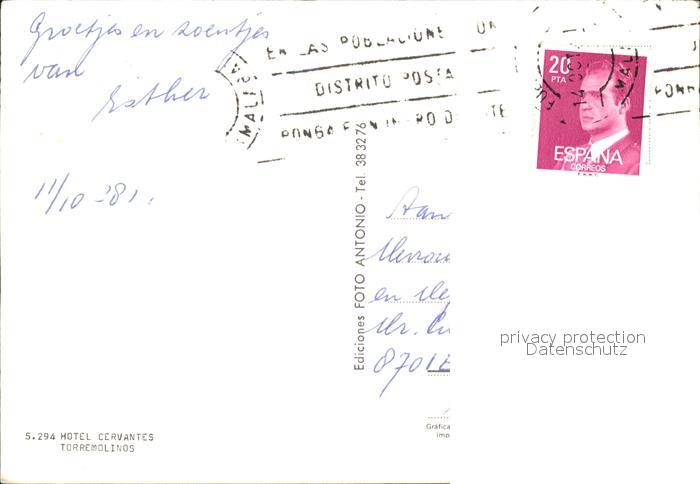 Groetjes en zoentjes
van
Esther
11/10 '81.
EN LAS POBLACIONE
DISTRITO POSTA
PONGA
MAL
20
PTA
ESPAÑA
CORREOS
Ediciones FOTO ANTONIO - Tel. 383276
Aan
en
8701E
privacy protection
Datenschutz
Gráfica
imp
5.294 HOTEL CERVANTES
TORREMOLINOS